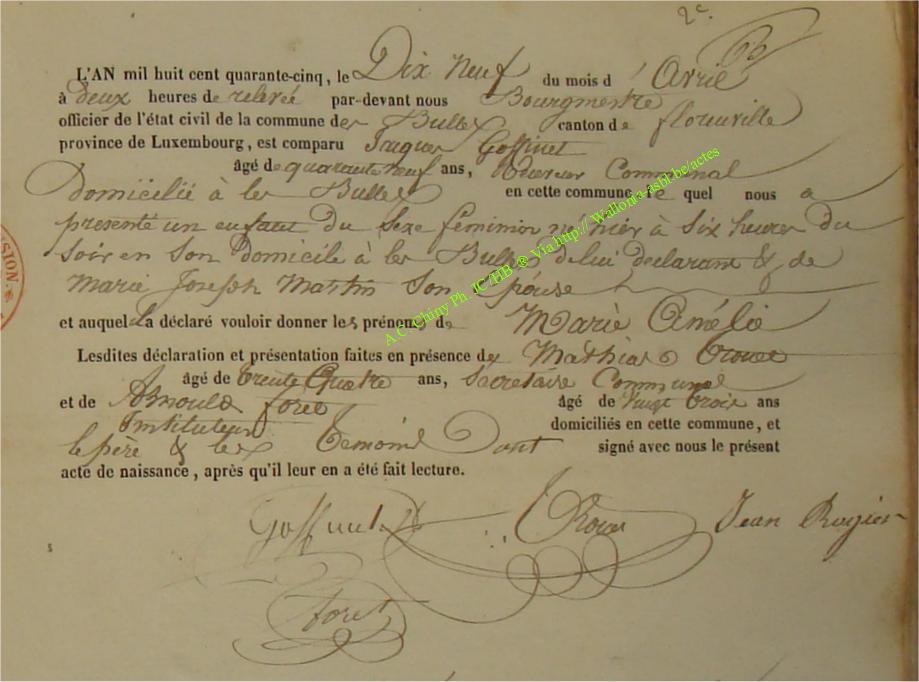 2e
L'AN mil huit cent quarante-cinq, le Dix neuf du mois d' Avril
à deux heures de relevée par-devant nous Bourgmestre
officier de l'état civil de la commune des Bulles canton de florenville
province de Luxembourg, est comparu Jacques Goffinet
âgé de quarante neuf ans, Communal
domicilié à les Bulles en cette commune, le quel nous a
présenté un enfant du sexe féminin né hier à six heures du
soir en son domicile à les Bulles de lui déclarant & de
Marie Joseph Martin son épouse
et auquel il a déclaré vouloir donner les prénoms de Marie Amélie
Lesdites déclaration et présentation faites en présence de Mathias
âgé de trente Quatre ans, Sécretaire Communal
et de Arnould foret âgé de vingt trois ans
Instituteur domiciliés en cette commune, et
le père & les temoins Dont signé avec nous le présent
acte de naissance, après qu'il leur en a été fait lecture.
Goffinet Jean Rogier
foret
SION.
A.C. Chiny Ph. JC/HB ® Via http://Wallonia-asbl.be/actes